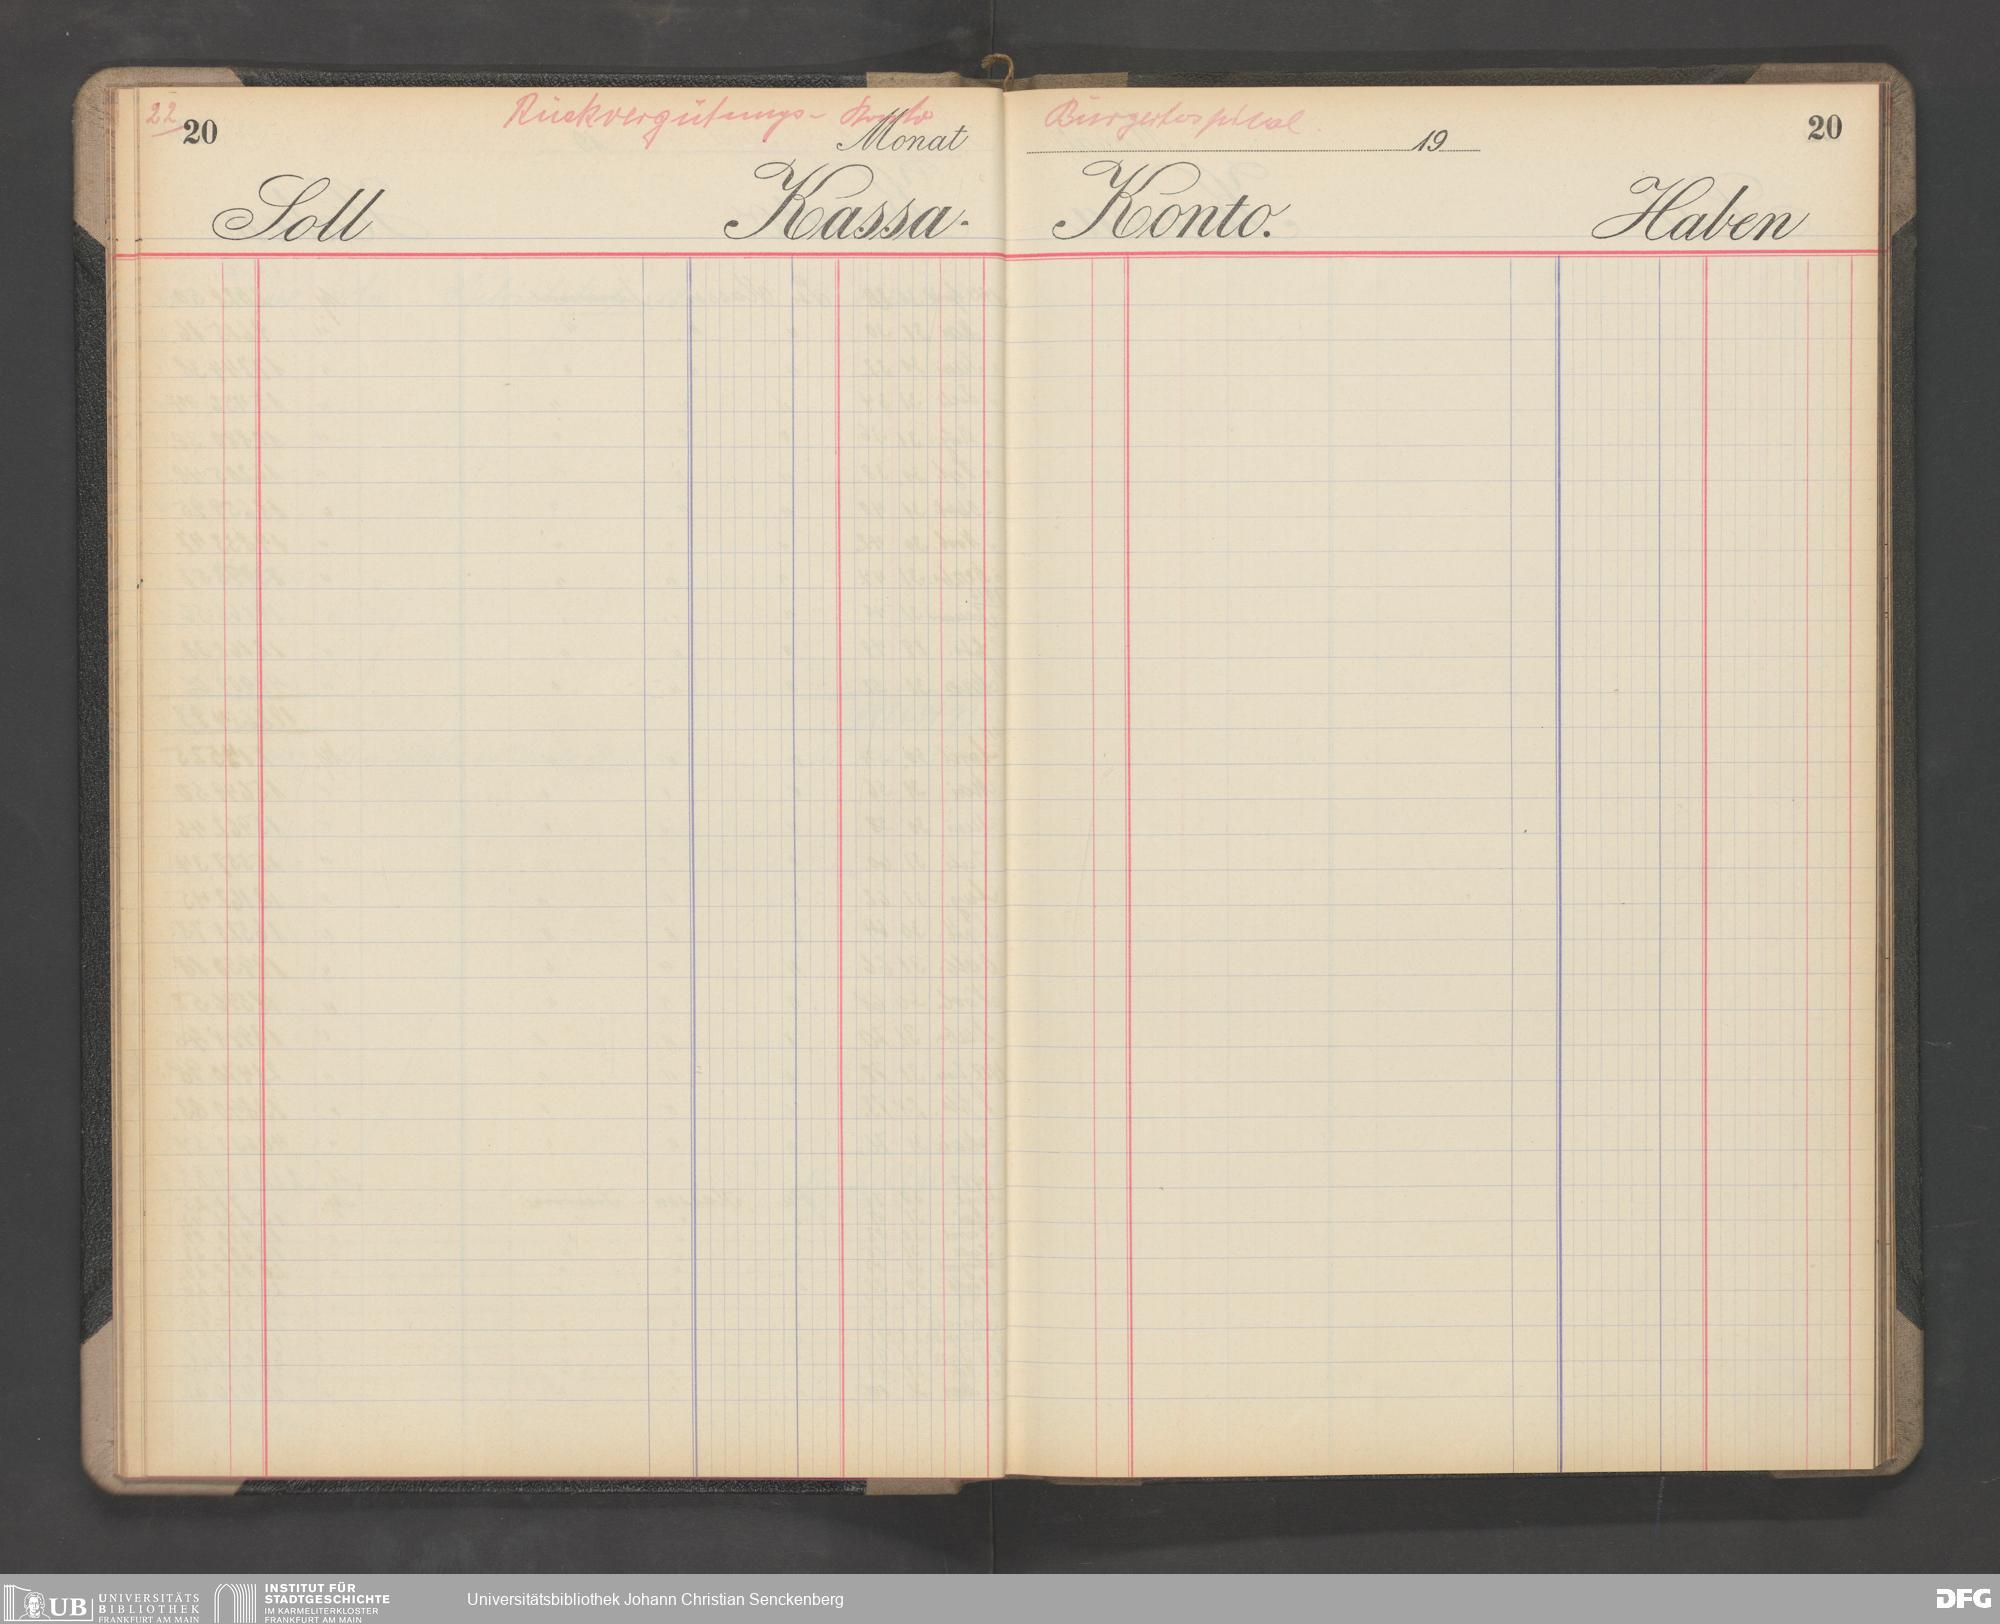 22
20
Rückvergütungs-Konto Bürgerhospital
Monat 19
20
Soll Kassa-Konto. Haben
UB UNIVERSITÄTS
BIBLIOTHEK
FRANKFURT AM MAIN
INSTITUT FÜR
STADTGESCHICHTE
IM KARMELITERKLOSTER
FRANKFURT AM MAIN
Universitätsbibliothek Johann Christian Senckenberg
DFG